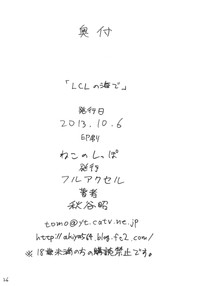 奥付
「LCLの海で」
発行日
2013.10.6
印刷
ねこのしっぽ
発行
フルアクセル
著者
秋谷昭
tomo@yc.catv.ne.jp
http://akiya564.blog.fc2.com/
※18歳未満の方の購読禁止です。
26